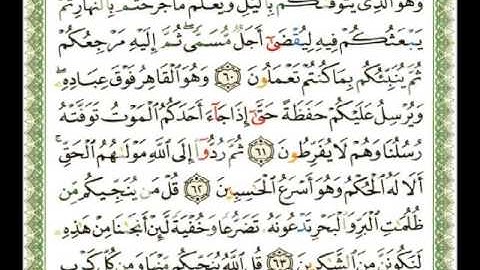 وَهُوَ الَّذِي يَتَوَفَّاكُم بِاللَّيْلِ وَيَعْلَمُ مَا جَرَحْتُم بِالنَّهَارِ ثُمَّ
يَبْعَثُكُمْ فِيهِ لِيُقْضَىٰ أَجَلٌ مُّسَمًّى ۖ ثُمَّ إِلَيْهِ مَرْجِعُكُمْ
ثُمَّ يُنَبِّئُكُم بِمَا كُنتُمْ تَعْمَلُونَ ٦٠ وَهُوَ الْقَاهِرُ فَوْقَ عِبَادِهِ ۖ
وَيُرْسِلُ عَلَيْكُمْ حَفَظَةً حَتَّىٰ إِذَا جَاءَ أَحَدَكُمُ الْمَوْتُ تَوَفَّتْهُ
رُسُلُنَا وَهُمْ لَا يُفَرِّطُونَ ٦١ ثُمَّ رُدُّوا إِلَى اللَّهِ مَوْلَاهُمُ الْحَقِّ ۚ
أَلَا لَهُ الْحُكْمُ وَهُوَ أَسْرَعُ الْحَاسِبِينَ ٦٢ قُلْ مَن يُنَجِّيكُم مِّن
ظُلُمَاتِ الْبَرِّ وَالْبَحْرِ تَدْعُونَهُ تَضَرُّعًا وَخُفْيَةً لَّئِنْ أَنجَانَا مِنْ هَٰذِهِ
لَنَكُونَنَّ مِنَ الشَّاكِرِينَ ٦٣ قُلِ اللَّهُ يُنَجِّيكُم مِّنْهَا وَمِن كُلِّ كَرْبٍ